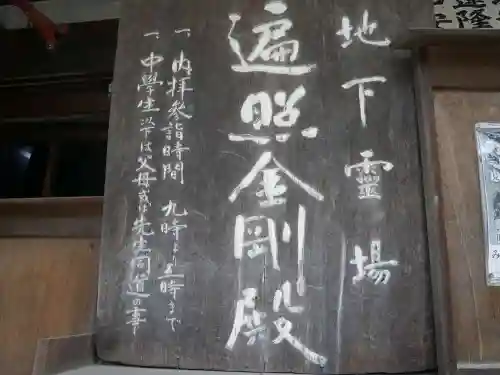 地下霊場
遍照金剛殿
一、内拝参詣時間 九時より五時まで
一、中學生以下は父母或は先生同道の事